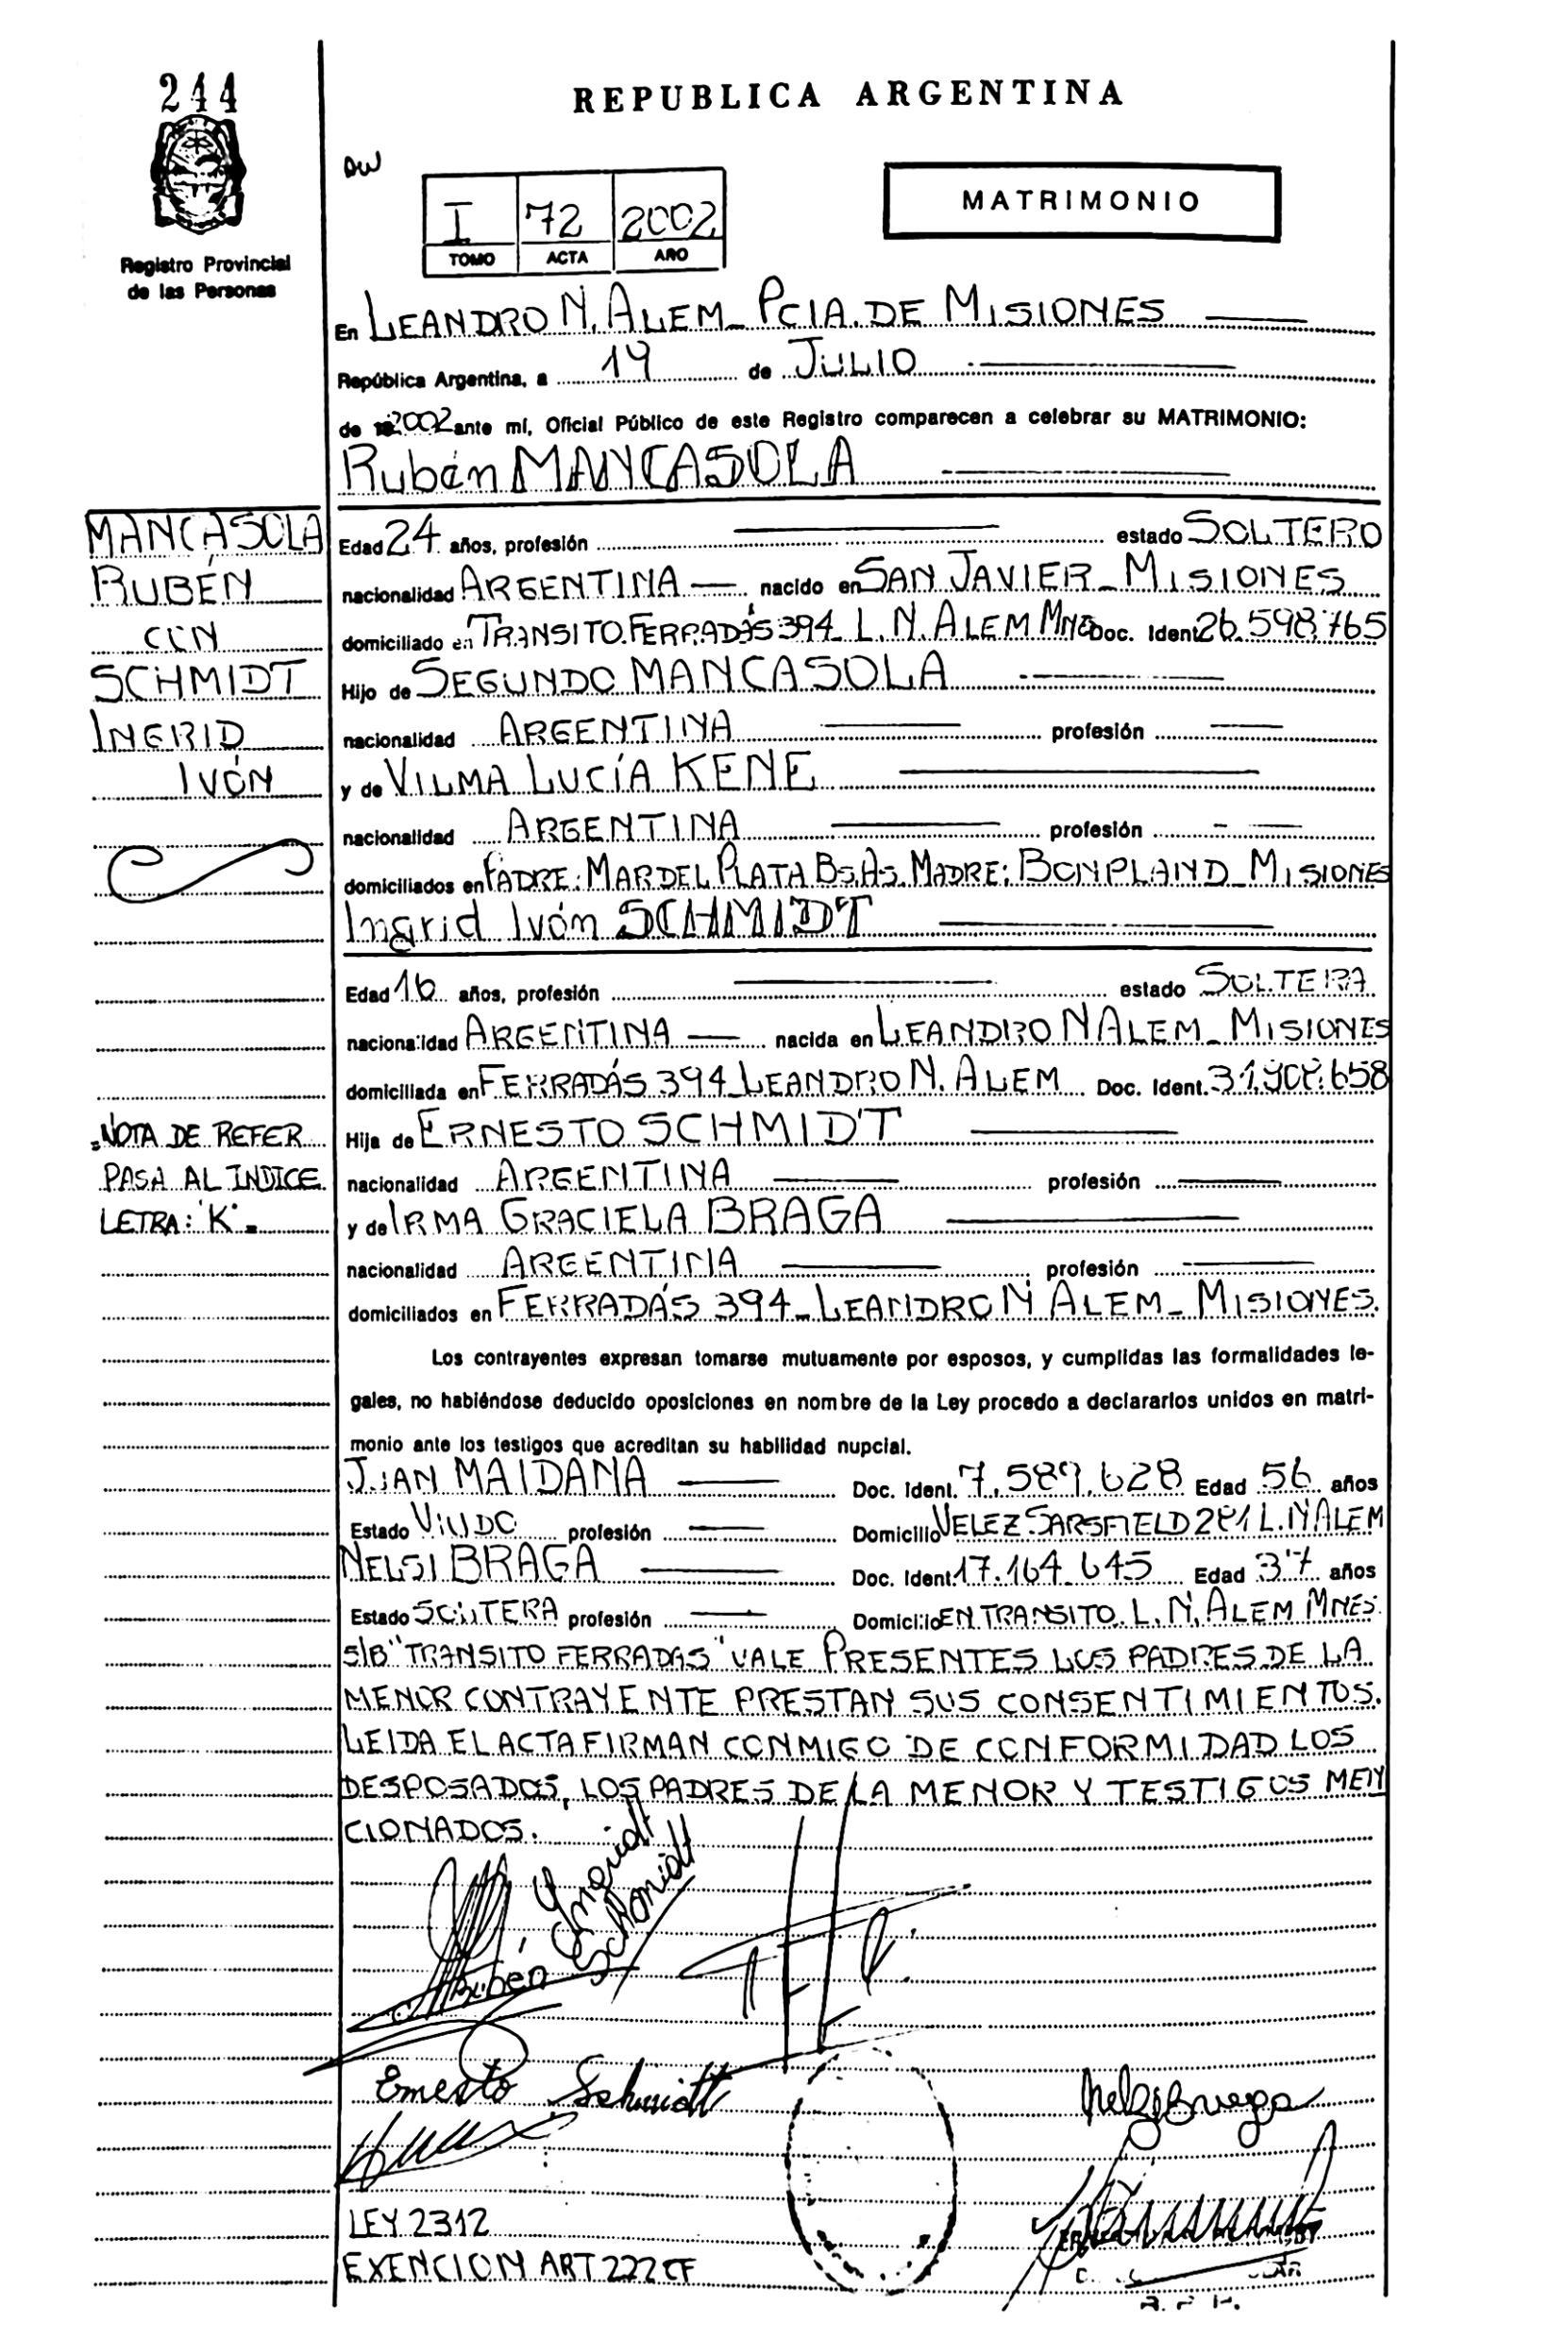 244
REPUBLICA ARGENTINA
I 72 2002
TOMO ACTA AÑO
MATRIMONIO
Registro Provincial
de las Personas
En LEANDRO N. ALEM_ PCIA. DE MISIONES
República Argentina, a 19 de JULIO
de 2002 ante mí, Oficial Público de este Registro comparecen a celebrar su MATRIMONIO:
Rubén MANCASOLA
MANCASOLA
RUBÉN
CON
SCHMIDT
INGRID
IVÓN
Edad 24 años, profesión estado SOLTERO
nacionalidad ARGENTINA — nacido en SAN JAVIER_ MISIONES
domiciliado en TRANSITO FERRADÁS 394_ L. N. ALEM Mnes Doc. Ident. 26.598.765
Hijo de SEGUNDO MANCASOLA
nacionalidad ARGENTINA profesión
y de VILMA LUCÍA KENE
nacionalidad ARGENTINA profesión
domiciliados en PADRE: MAR DEL PLATA Bs.As. MADRE: BONPLAND_ MISIONES
Ingrid Ivón SCHMIDT
Edad 16 años, profesión estado SOLTERA
nacionalidad ARGENTINA — nacida en LEANDRO N ALEM_ MISIONES
domiciliada en FERRADÁS 394_ LEANDRO N. ALEM Doc. Ident. 31.908.658
Hija de ERNESTO SCHMIDT
nacionalidad ARGENTINA profesión
y de IRMA GRACIELA BRAGA
nacionalidad ARGENTINA profesión
domiciliados en FERRADÁS 394_ LEANDRO N ALEM_ MISIONES.
NOTA DE REFER
PASA AL INDICE
LETRA: "K"
Los contrayentes expresan tomarse mutuamente por esposos, y cumplidas las formalidades le-
gales, no habiéndose deducido oposiciones en nombre de la Ley procedo a declararlos unidos en matri-
monio ante los testigos que acreditan su habilidad nupcial.
JUAN MAIDANA Doc. Ident. 7.589.628 Edad 56 años
Estado VIUDO profesión Domicilio VELEZ SARSFIELD 281 L. N ALEM
NELSI BRAGA Doc. Ident. 17.164.645 Edad 37 años
Estado SOLTERA profesión Domicilio EN TRANSITO. L. N. ALEM MNES.
S/B "TRANSITO FERRADAS" VALE PRESENTES LOS PADRES DE LA
MENOR CONTRAYENTE PRESTAN SUS CONSENTIMIENTOS.
LEIDA EL ACTA FIRMAN CONMIGO DE CONFORMIDAD LOS
DESPOSADOS, LOS PADRES DE LA MENOR Y TESTIGOS MEN
CIONADOS.
Ingrid
Schmidt
Rubén
Ernesto Schmidt
Nelsi Braga
LEY 2312
EXENCION ART 222 CF